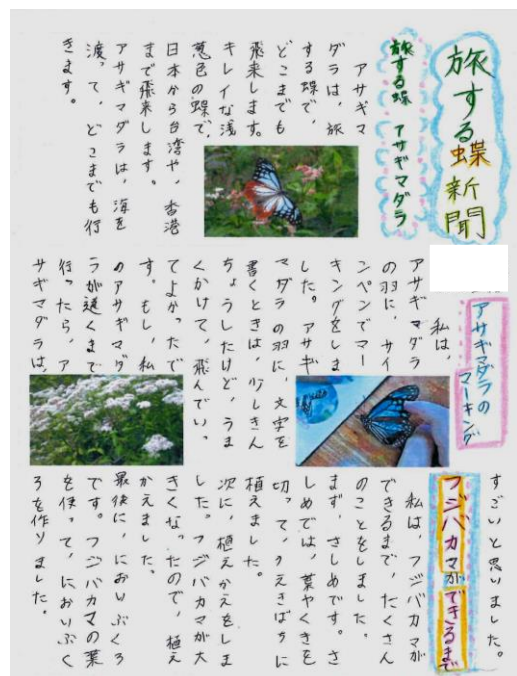 旅する蝶新聞
旅する蝶 アサギマダラ
アサギマ
ダラは、旅
する蝶で、
どこまでも
飛来します。
キレイな浅
葱色の蝶で、
日本から台湾や、香港
まで飛来します。
アサギマダラは、海を
渡って、どこまでも行
きます。
アサギマダラの
マーキング
私は、
アサギマダラ
の羽に、サイ
ンペンでマー
キングをしま
した。アサギ
マダラの羽に、文字を
書くときは、少しきん
ちょうしたけど、うま
くかけて、飛んでいっ
てよかったで
す。もし、私
のアサギマダ
ラが遠くまで
行ったら、ア
サギマダラは、
すごいと思いました。
フジバカマができるまで
私は フジバカマが
できるまで、たくさん
のことをしました。
まず、さしめです。さ
しめでは、葉やくきを
切って、うえきばちに
植えました。
次に、植えかえをしま
した。フジバカマが大
きくなったので、植え
かえました。
最後に、においぶくろ
です。フジバカマの葉
を使って、においぶく
ろを作りました。